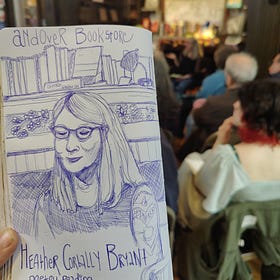 andover Bookstore
HEATHER CORBALLY BRYANT
poetry reading